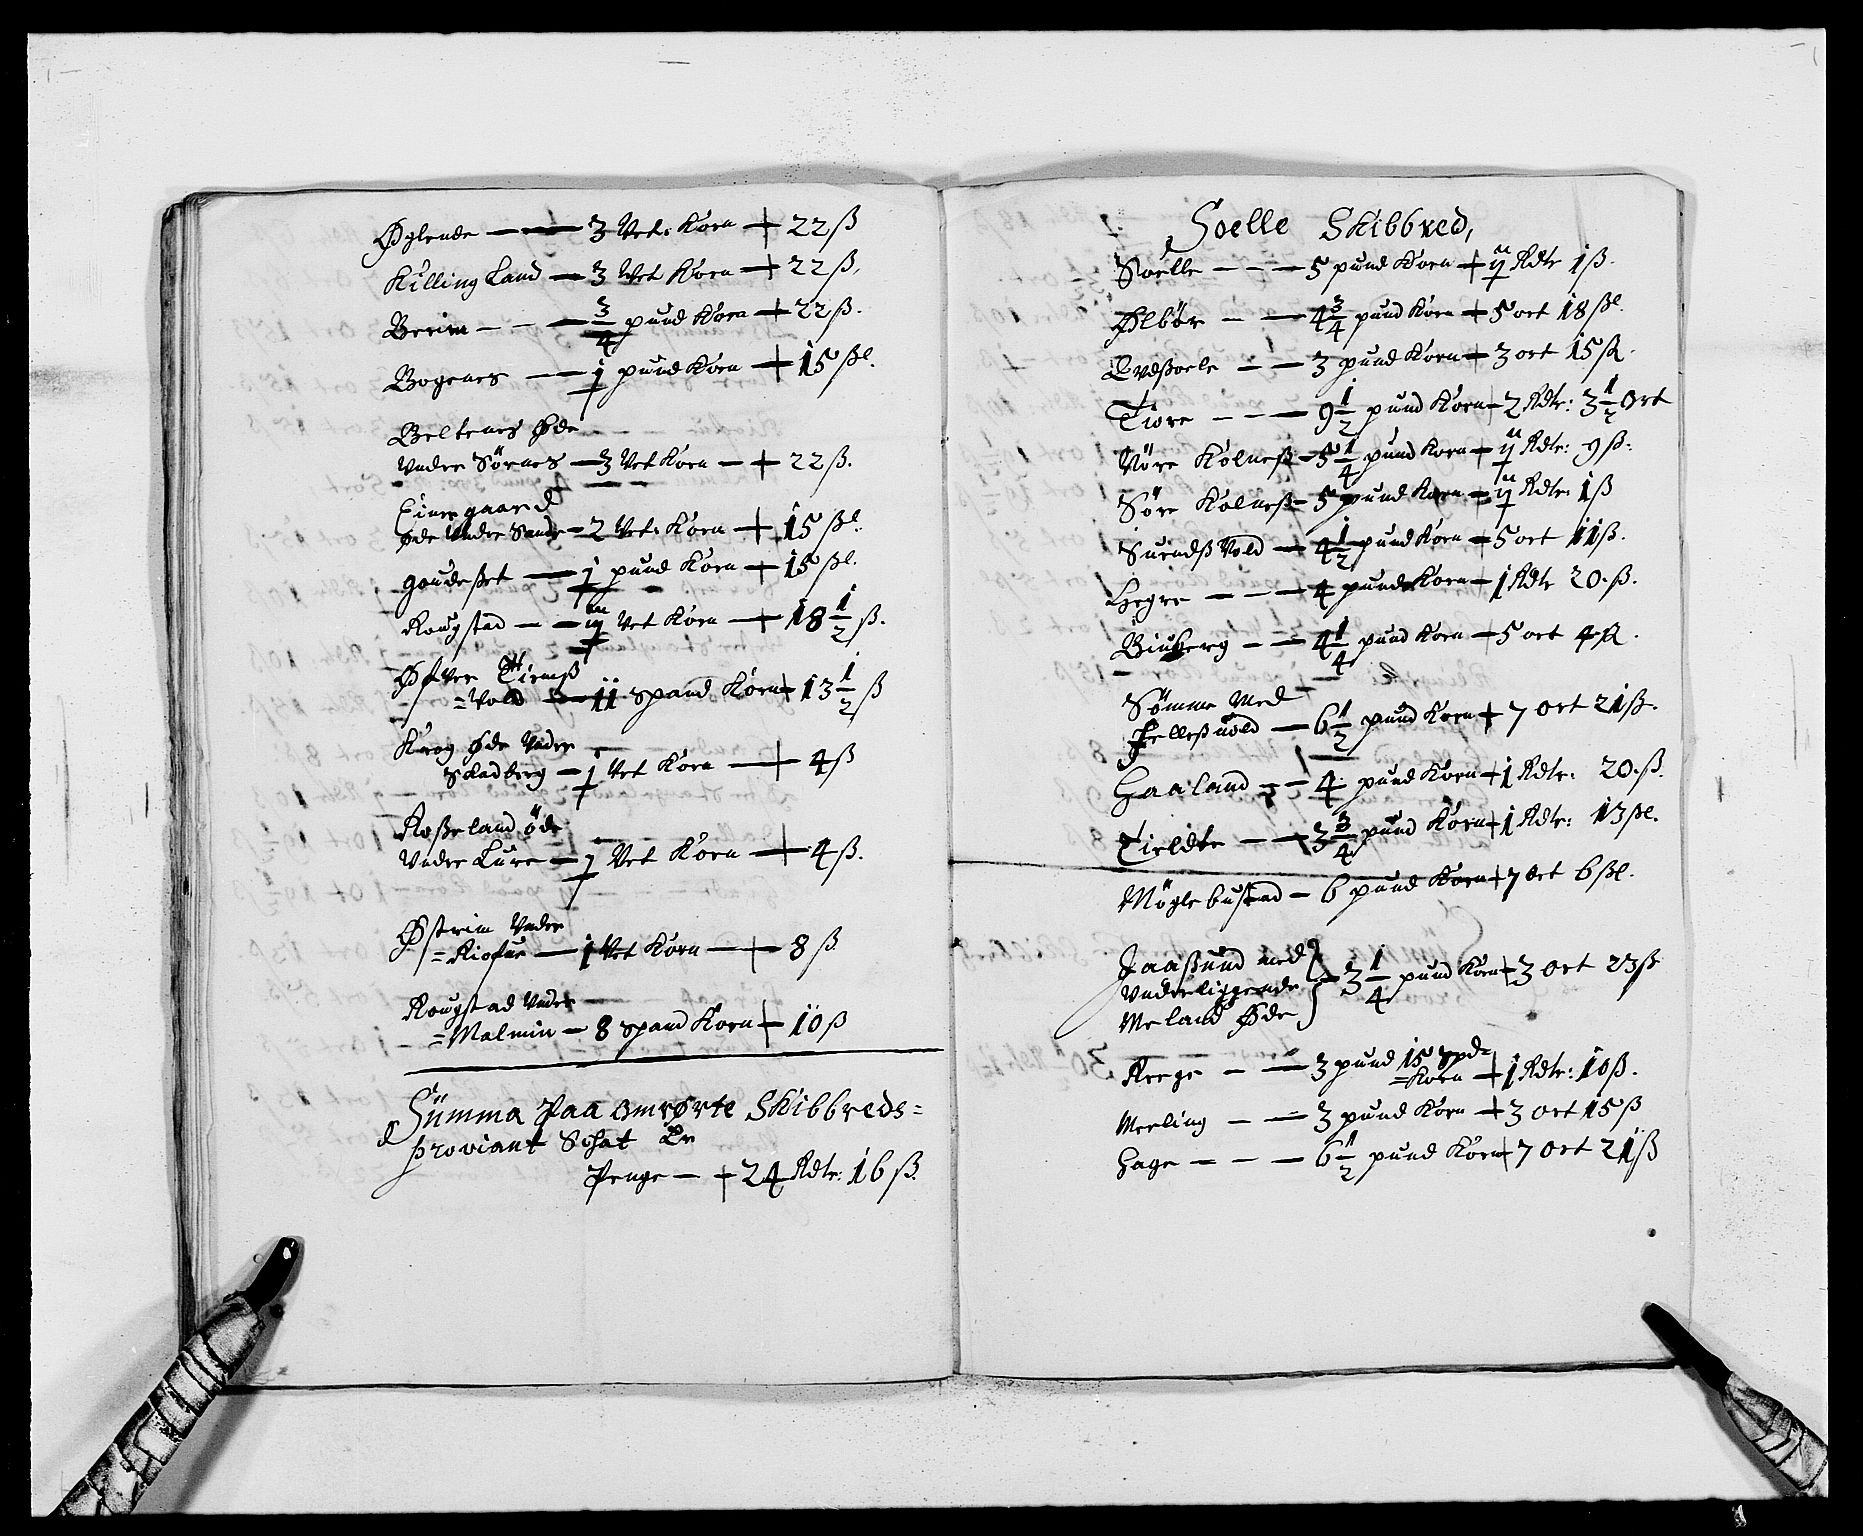 Øglende — 3 Vet: Korn + 22 ß
Killing Land — 3 Vet Korn + 22 ß,
Berim — — 3/4 pund Korn + 22 ß.
Bogenes — 1 pund Korn + 15 ßl.
Beltenes Øde
Vnder Sörnes — 3 Vet Korn — + 22 ß.
Einergaard
øde Vnder Sande — 2 Vet: Korn + 15 ßl.
goudeset — 1 pund Korn + 15 ßl.
Rougstad — — Vet Korn — + 18 1/2 ß.
Øfver
= Vold — 11 spand Korn + 13 1/2 ß
Krog Øde Vnder
Skadberg — 1 Vet Korn — + 4 ß
Roßeland öde
Vnder Lure — 1 Vet Korn — + 4 ß.
Østrim Vnder
= Riofue — 1 Vet Korn — + 8 ß
Rougstad Vnder
= Malmin — 8 spand Korn + 10 ß
Summa Paa omrørte Skibbreds=
proviant Schat Er
Penge — + 24 Rdtr: 16 ß.
Soelle Skibbred,
Soelle — — — 5 pund Korn + Rdtr 1 ß.
Ølbör — — 4 3/4 pund Korn + 5 ort 18 ßl.
Evdsoele — — 3 pund Korn + 3 ort 15 ß.
Tiore — — — 9 1/2 pund Korn + 2 Rdtr: 3 1/2 Ort
Nöre Kolneß — 5 1/4 pund Korn + Rdtr: 9 ß.
Söre Kolneß — 5 pund Korn + Rdtr: 1 ß
Suendß Vold — 4 1/2 pund Korn + 5 ort 11 ß.
Hegre — — — 4 pund Korn + 1 Rdtr 20 ß.
Biuberg — — 4 1/4 pund Korn + 5 ort 4 ß.
Sömme Med
Jelleßuold — 6 1/2 pund Korn + 7 Ort 21 ß.
Haaland — — 4 pund Korn + 1 Rdtr: 20 ß.
Tieldte — — 3 3/4 pund Korn + 1 Rdtr: 13 ßl.
Möglebustad — 6 pund Korn + 7 Ort 6 ßl.
Jaaßund med
Vnderliggende — 3 1/4 pund Korn + 3 Ort 23 ß
Meland Øde
Reege — — 3 pund 15 spd=
= Korn + 1 Rdtr: 10 ß.
Meeling — — 3 pund Korn + 3 Ort 15 ß
Hage — — — 6 1/2 pund Korn + 7 Ort 21 ß